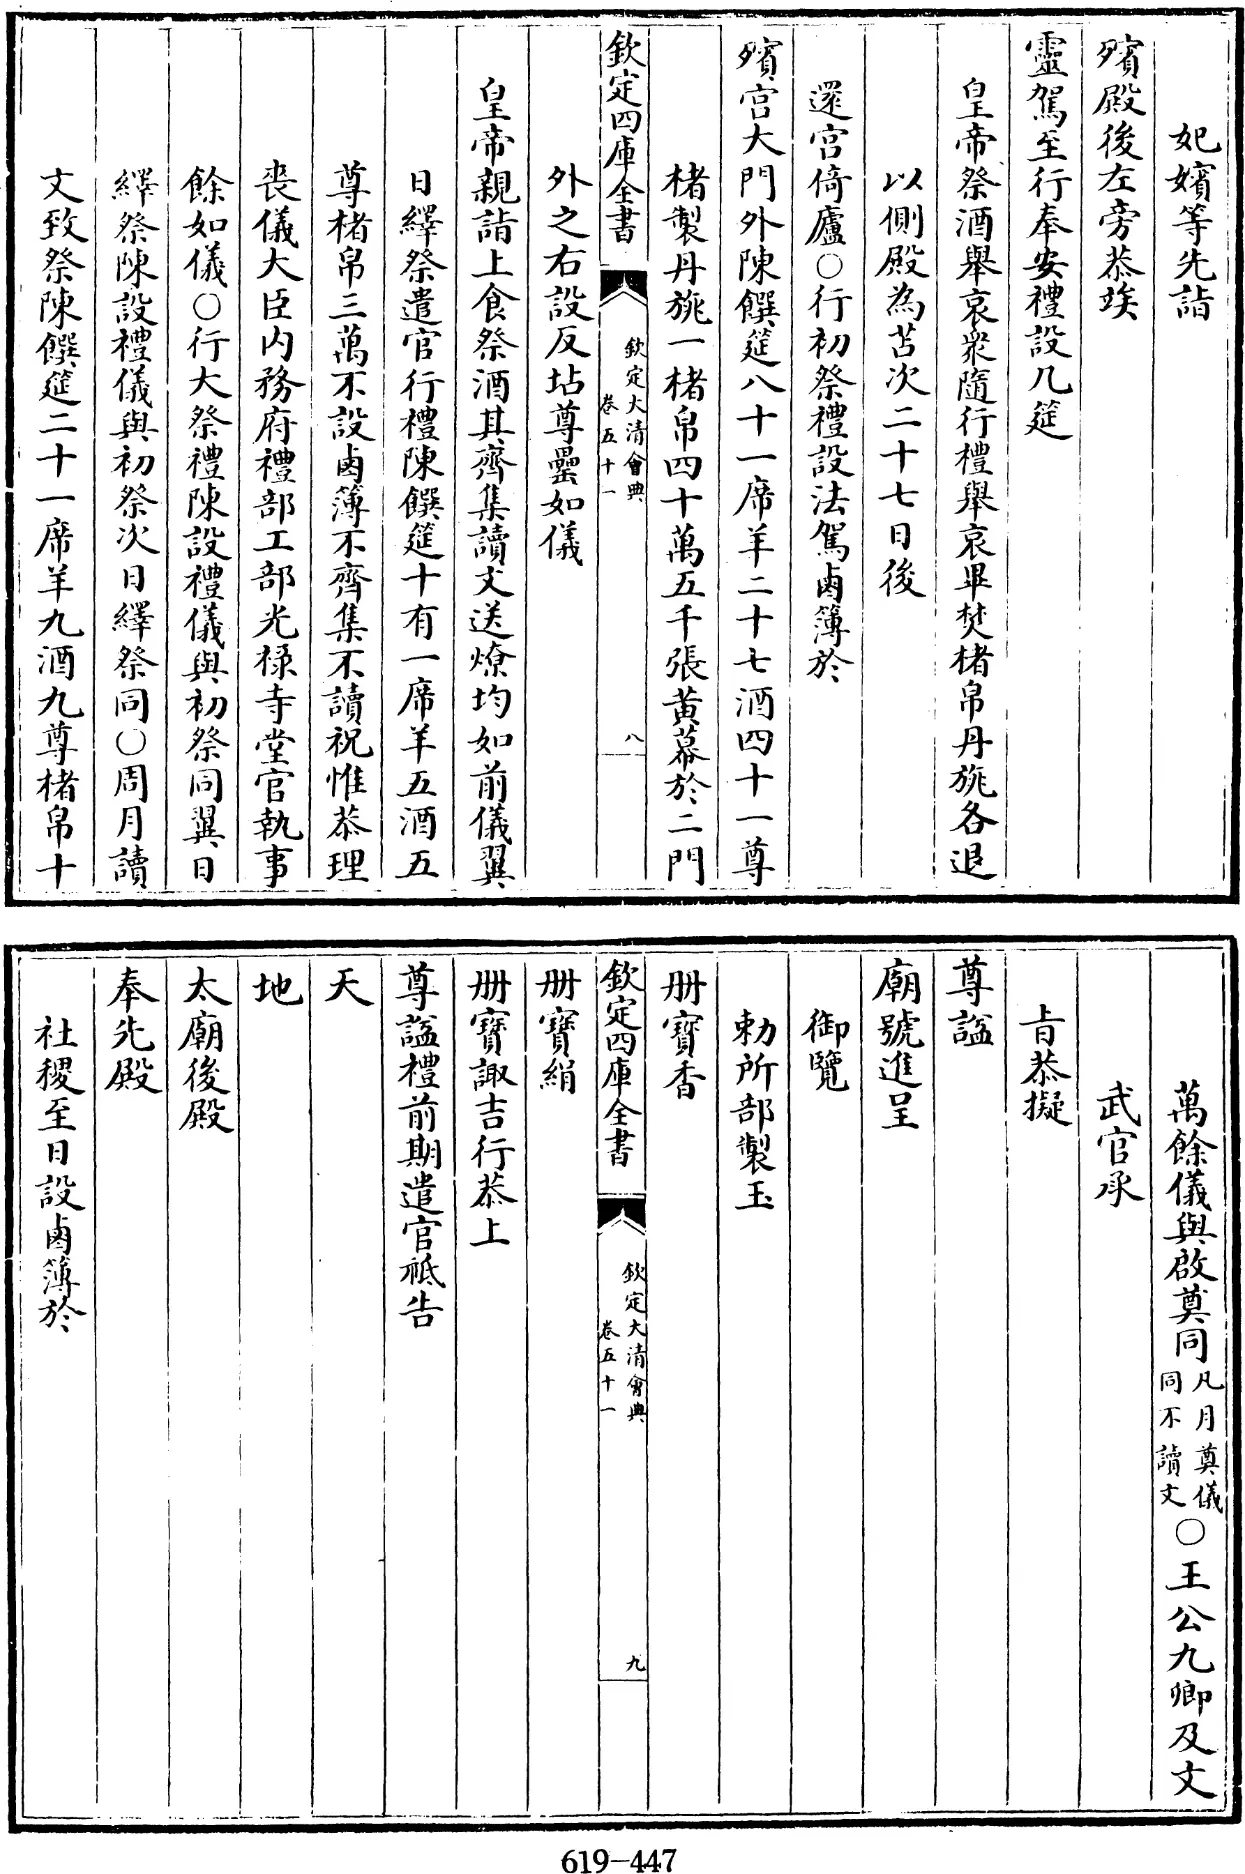 妃嬪等先詣
殯殿後左旁恭竢
靈駕至行奉安禮設几筵
皇帝祭酒舉哀衆隨行禮舉哀畢焚楮帛丹旐各退
以側殿為苫次二十七日後
還宮倚廬〇行初祭禮設法駕鹵簿於
殯宮大門外陳饌筵八十一席羊二十七酒四十一尊
楮製丹旐一楮帛四十萬五千張黃幕於二門
欽定四庫全書
欽定大清會典
卷五十一
八
外之右設反坫尊罍如儀
皇帝親詣上食祭酒其齊集讀文送燎均如前儀翼
日繹祭遣官行禮陳饌筵十有一席羊五酒五
尊楮帛三萬不設鹵簿不齊集不讀祝惟恭理
喪儀大臣内務府禮部工部光祿寺堂官執事
餘如儀〇行大祭禮陳設禮儀與初祭同翼日
繹祭陳設禮儀與初祭次日繹祭同〇周月讀
文致祭陳饌筵二十一席羊九酒九尊楮帛十
萬餘儀與啟奠同凡月奠儀同不讀文〇王公九卿及文
武官承
旨恭擬
尊諡
廟號進呈
御覽
勅所部製玉
册寶香
欽定四庫全書
欽定大清會典
卷五十一
九
册寶絹
册寶諏吉行恭上
尊諡禮前期遣官祗告
天
地
太廟後殿
奉先殿
社稷至日設鹵簿於
619-447